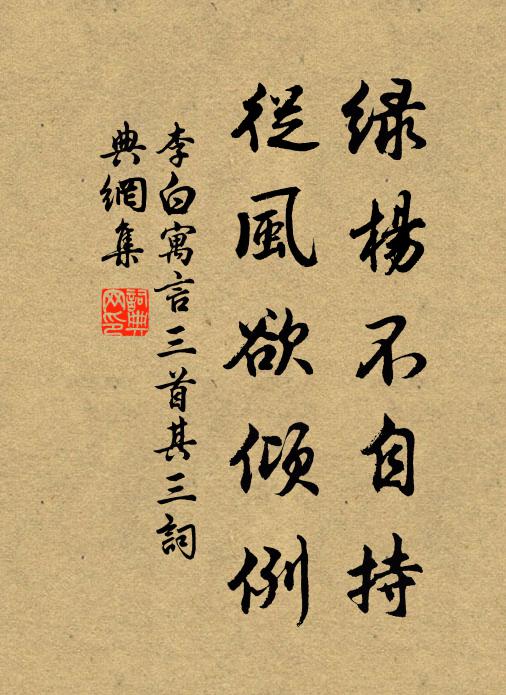 綠楊不自持
從風欲傾例
李白寓言三首其三詞
典網集
詞典网印